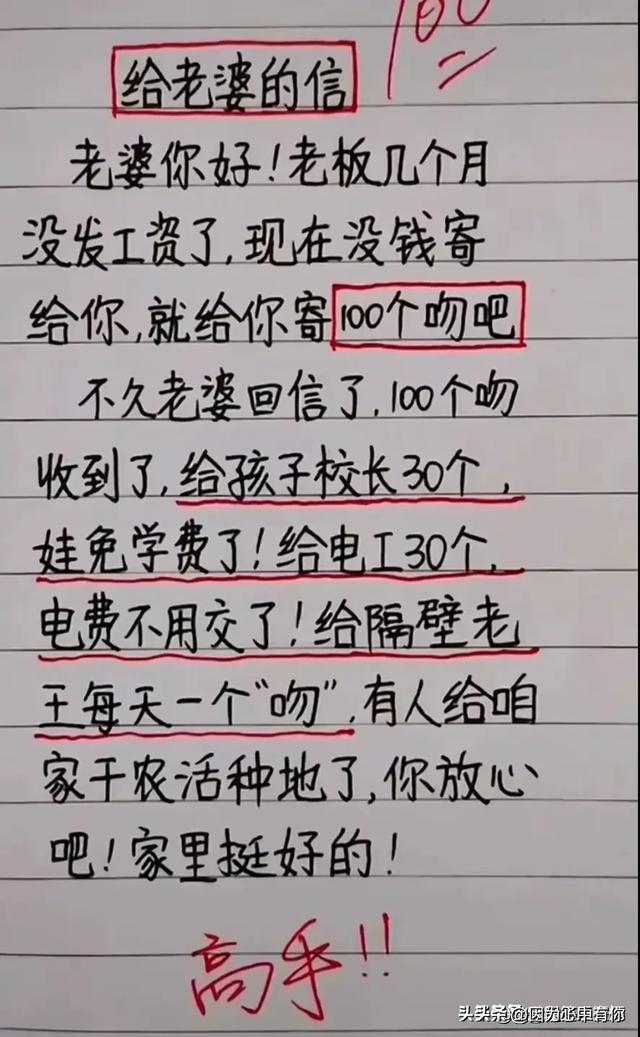 100
给老婆的信
老婆你好！老板几个月
没发工资了，现在没钱寄
给你，就给你寄100个吻吧
不久老婆回信了，100个吻
收到了，给孩子校长30个，
娃免学费了！给电工30个，
电费不用交了！给隔壁老
王每天一个“吻”，有人给咱
家干农活种地了，你放心
吧！家里挺好的！
高手!!
头条 @因为心中有你